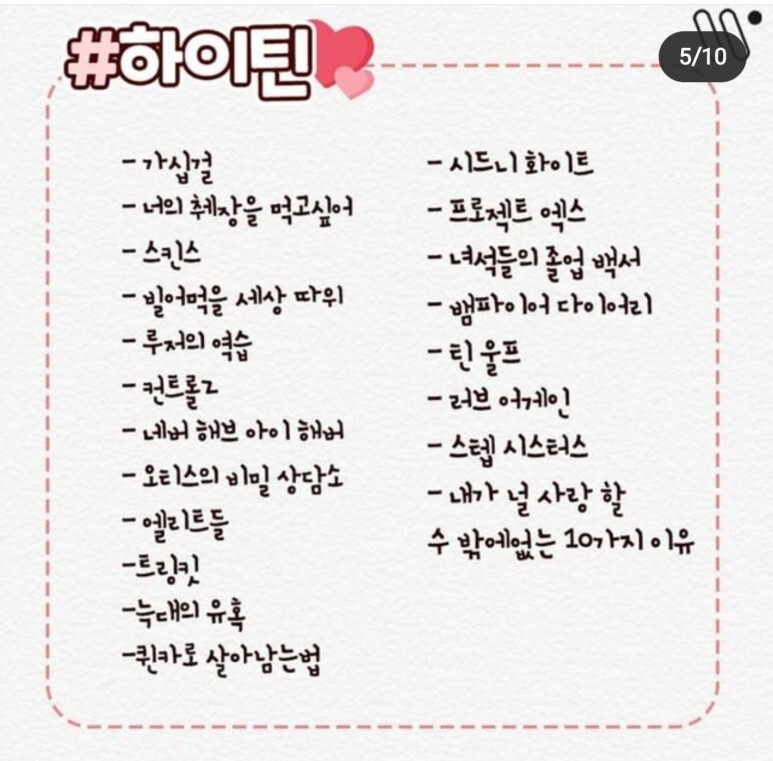 #하이틴
5/10
- 가십걸
- 너의 췌장을 먹고싶어
- 스킨스
- 빌어먹을 세상 따위
- 루저의 역습
- 컨트롤Z
- 네버 해브 아이 해버
- 오티스의 비밀 상담소
- 엘리트들
-트링킷
-늑대의 유혹
-퀸카로 살아남는법
- 시드니 화이트
- 프로젝트 엑스
- 녀석들의 졸업 백서
- 뱀파이어 다이어리
- 틴 울프
- 러브 어게인
- 스텝 시스터스
- 내가 널 사랑 할
수 밖에없는 10가지 이유